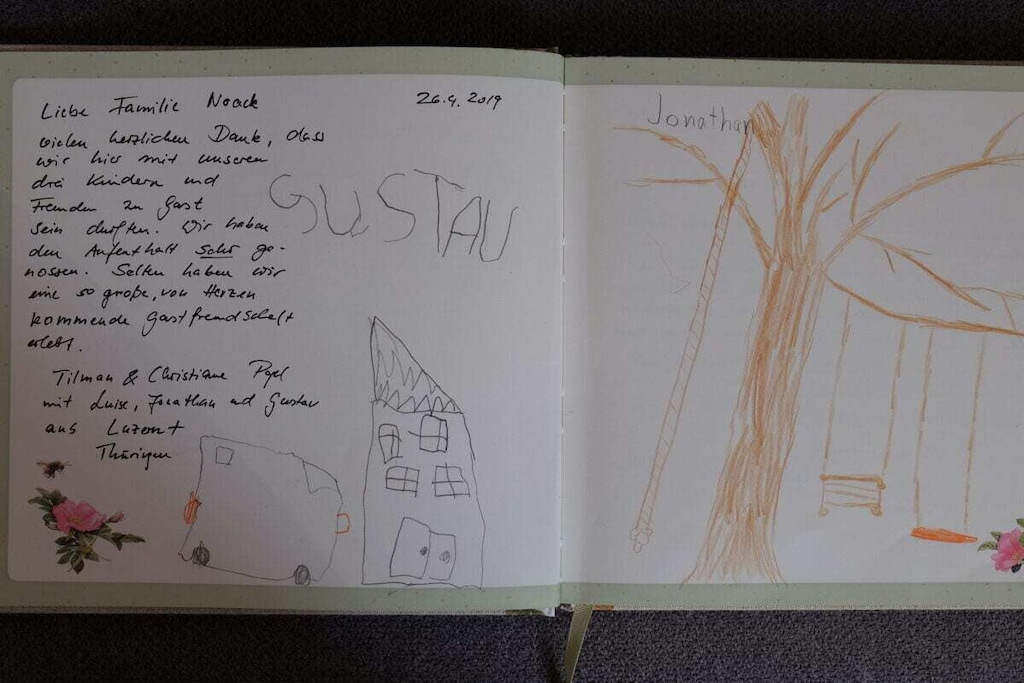 Liebe Familie Noack
26.4.2019
vielen herzlichen Dank, dass
wir hier mit unseren
drei Kindern und
Freunden zu Gast
sein durften. Wir haben
den Aufenthalt sehr ge-
nossen. Selten haben wir
eine so große, von Herzen
kommende Gastfreundschaft
erlebt.
Tilman & Christiane
mit Luise, Jonathan und Gustav
aus Luzern +
Thüringen
GUSTAV
Jonathan